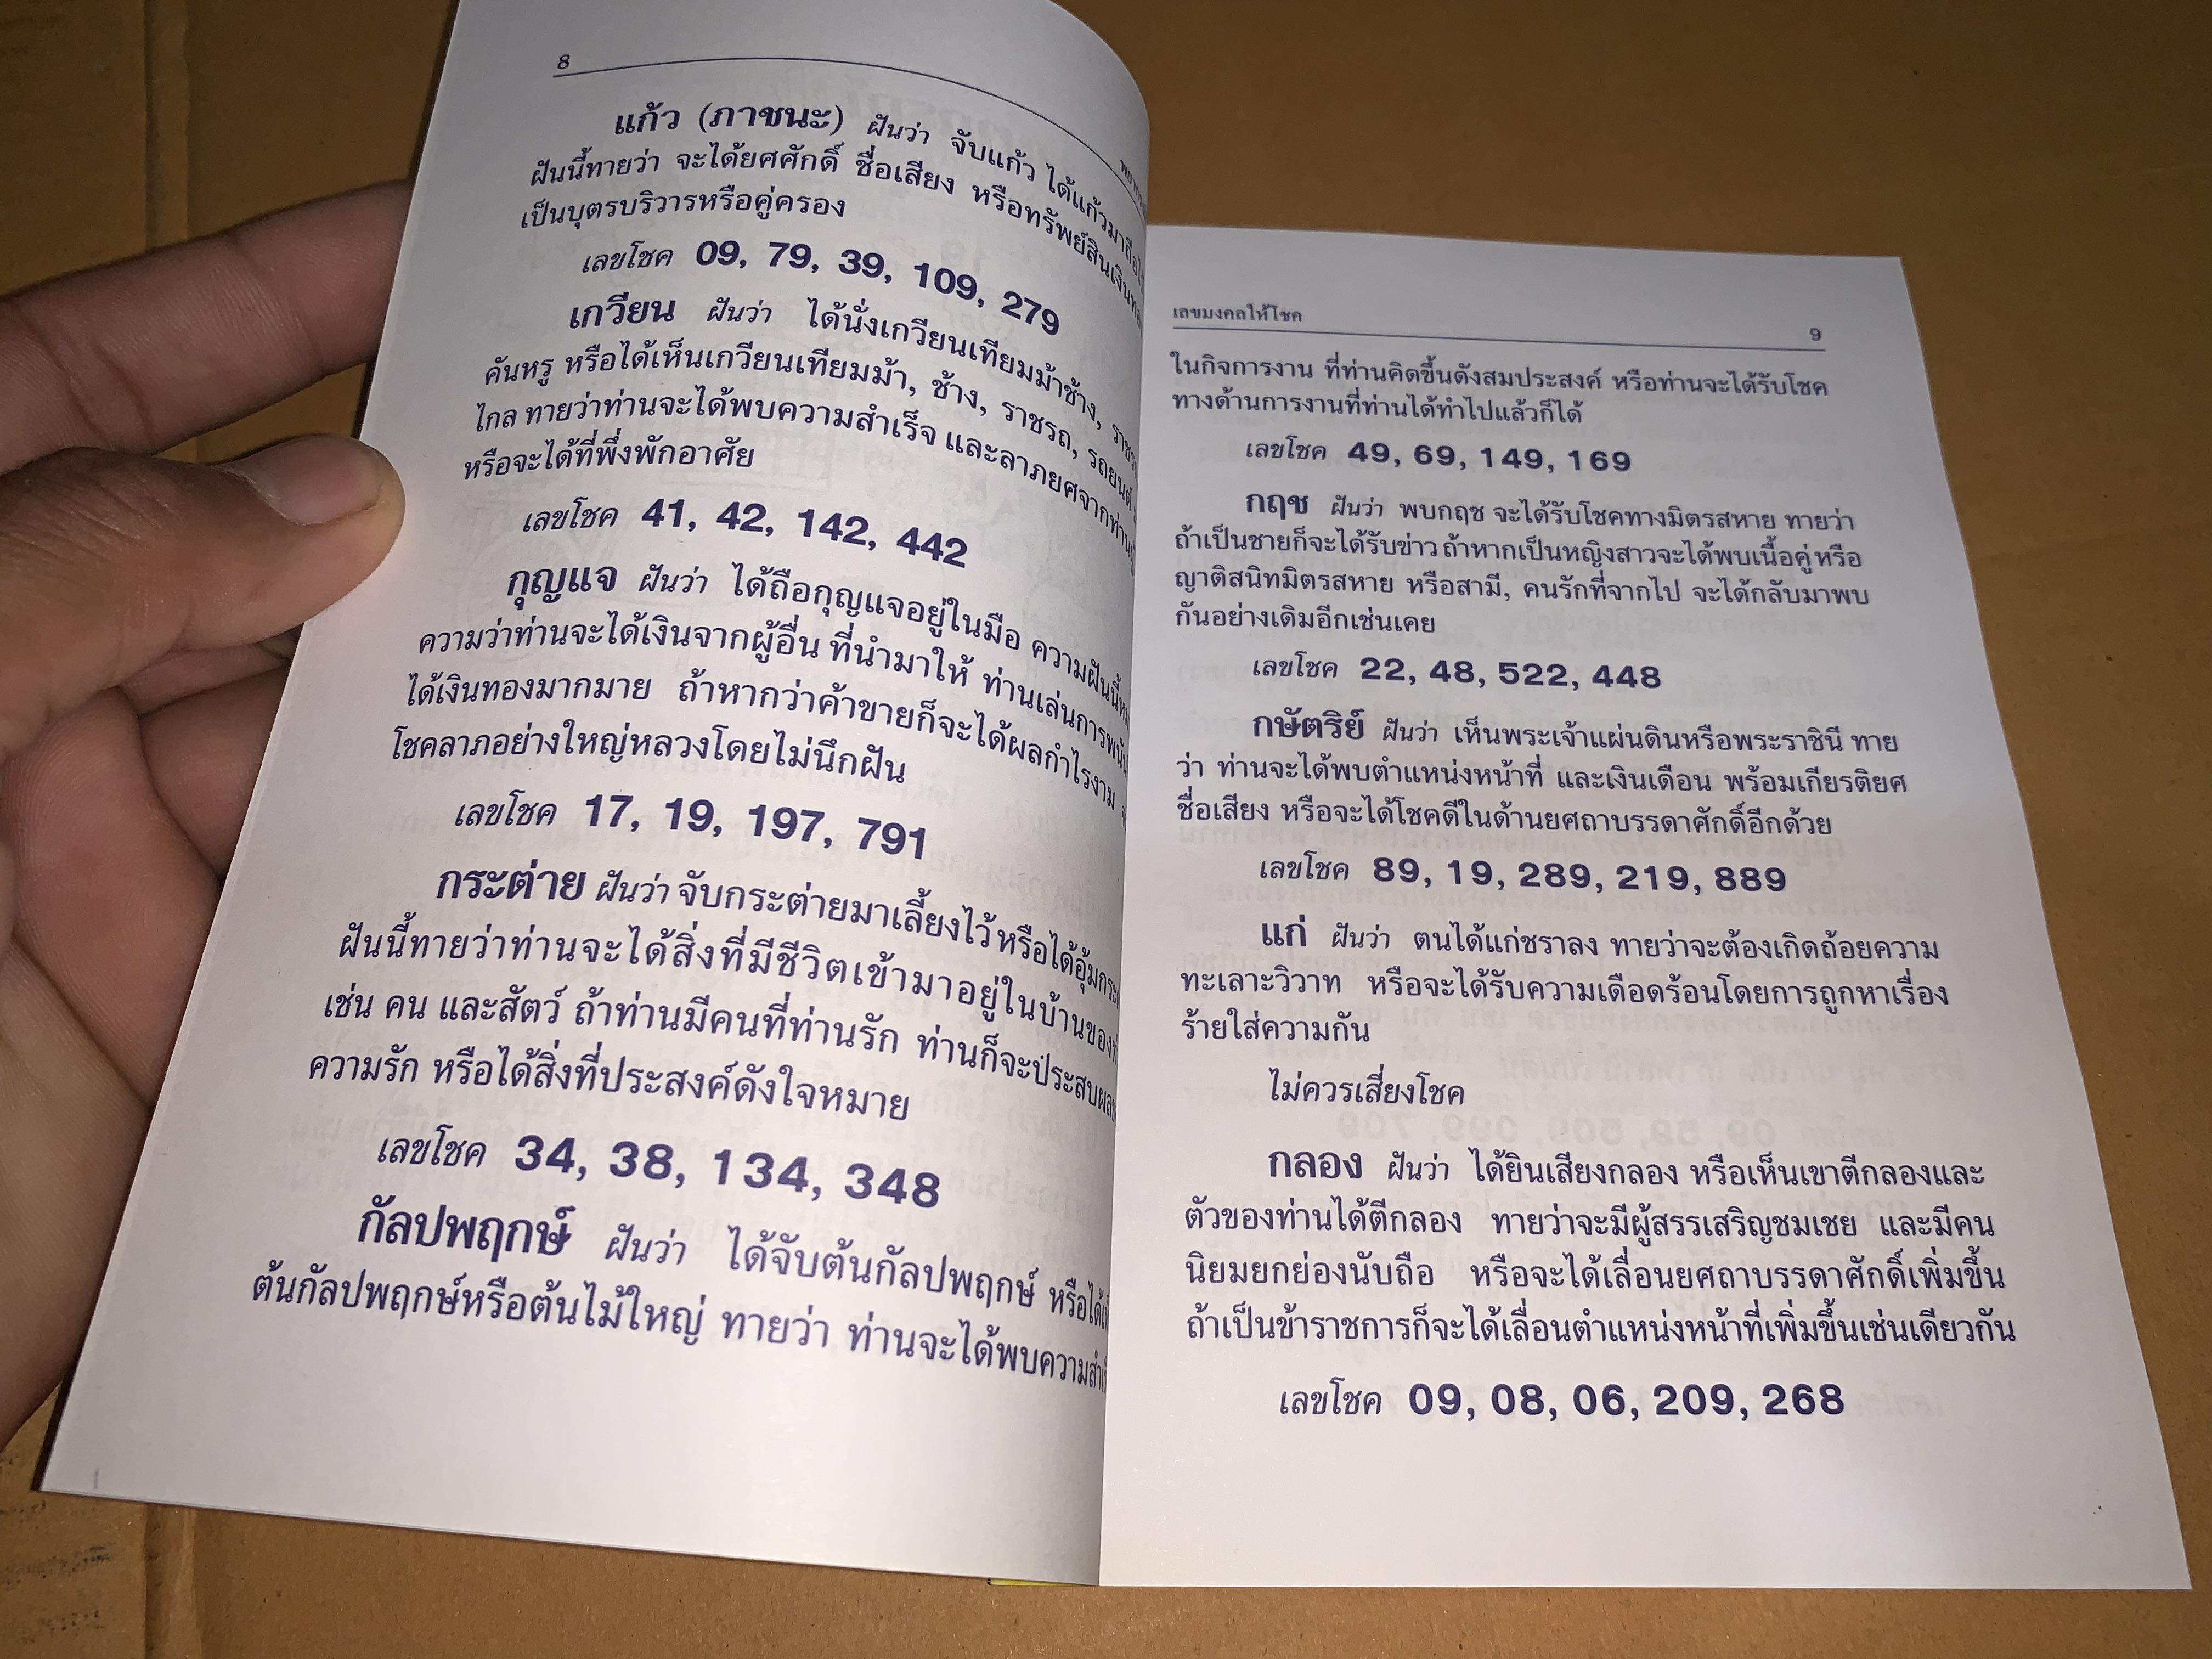 8
แก้ว (ภาชนะ) ฝันว่า จับแก้ว ได้แก้วมาถือ
ฝันนี้ทายว่า จะได้ยศศักดิ์ ชื่อเสียง หรือทรัพย์สินเงินทอง
เป็นบุตรบริวารหรือคู่ครอง
เลขโชค 09, 79, 39, 109, 279
เกวียน ฝันว่า ได้นั่งเกวียนเทียมม้าช้าง,
คันหรู หรือได้เห็นเกวียนเทียมม้า, ช้าง, ราชรถ, รถยนต์
ไกล ทายว่าท่านจะได้พบความสำเร็จ และลาภยศจากท่าน
หรือจะได้ที่พึ่งพักอาศัย
เลขโชค 41, 42, 142, 442
กุญแจ ฝันว่า ได้ถือกุญแจอยู่ในมือ ความฝันนี้
ความว่าท่านจะได้เงินจากผู้อื่น ที่นำมาให้ ท่านเล่นการพนัน
ได้เงินทองมากมาย ถ้าหากว่าค้าขายก็จะได้ผลกำไรงาม
โชคลาภอย่างใหญ่หลวงโดยไม่นึกฝัน
เลขโชค 17, 19, 197, 791
กระต่าย ฝันว่า จับกระต่ายมาเลี้ยงไว้ หรือได้อุ้ม
ฝันนี้ทายว่าท่านจะได้สิ่งที่มีชีวิตเข้ามาอยู่ในบ้าน
เช่น คน และสัตว์ ถ้าท่านมีคนที่ท่านรัก ท่านก็จะประสบ
ความรัก หรือได้สิ่งที่ประสงค์ดังใจหมาย
เลขโชค 34, 38, 134, 348
กัลปพฤกษ์ ฝันว่า ได้จับต้นกัลปพฤกษ์
ต้นกัลปพฤกษ์หรือต้นไม้ใหญ่ ทายว่า ท่านจะได้พบ
เลขมงคลให้โชค 9
ในกิจการงาน ที่ท่านคิดขึ้นดังสมประสงค์ หรือท่านจะได้รับโชค
ทางด้านการงานที่ท่านได้ทำไปแล้วก็ได้
เลขโชค 49, 69, 149, 169
กฤช ฝันว่า พบกฤช จะได้รับโชคทางมิตรสหาย ทายว่า
ถ้าเป็นชายก็จะได้รับข่าว ถ้าหากเป็นหญิงสาวจะได้พบเนื้อคู่ หรือ
ญาติสนิทมิตรสหาย หรือสามี, คนรักที่จากไป จะได้กลับมาพบ
กันอย่างเดิมอีกเช่นเคย
เลขโชค 22, 48, 522, 448
กษัตริย์ ฝันว่า เห็นพระเจ้าแผ่นดินหรือพระราชินี ทาย
ว่า ท่านจะได้พบตำแหน่งหน้าที่ และเงินเดือน พร้อมเกียรติยศ
ชื่อเสียง หรือจะได้โชคดีในด้านยศถาบรรดาศักดิ์อีกด้วย
เลขโชค 89, 19, 289, 219, 889
แก่ ฝันว่า ตนได้แก่ชราลง ทายว่าจะต้องเกิดถ้อยความ
ทะเลาะวิวาท หรือจะได้รับความเดือดร้อนโดยการถูกหาเรื่อง
ร้ายใส่ความกัน
ไม่ควรเสี่ยงโชค
กลอง ฝันว่า ได้ยินเสียงกลอง หรือเห็นเขาตีกลองและ
ตัวของท่านได้ตีกลอง ทายว่าจะมีผู้สรรเสริญชมเชย และมีคน
นิยมยกย่องนับถือ หรือจะได้เลื่อนยศถาบรรดาศักดิ์เพิ่มขึ้น
ถ้าเป็นข้าราชการก็จะได้เลื่อนตำแหน่งหน้าที่เพิ่มขึ้นเช่นเดียวกัน
เลขโชค 09, 08, 06, 209, 268